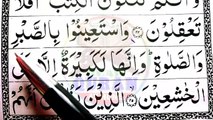 وَأَنْتُمْ تَتْلُونَ الْكِتٰبَ ؕ اَفَلَا
تَعْقِلُوْنَ ﴿۴۴﴾ وَاسْتَعِيْنُوْا بِالصَّبْرِ
وَالصَّلٰوةِ ؕ وَاِنَّهَا لَكَبِيْرَةٌ اِلَّا عَلَى
الْخٰشِعِيْنَ ﴿۴۵﴾ الَّذِيْنَ اَنَّهُمْ